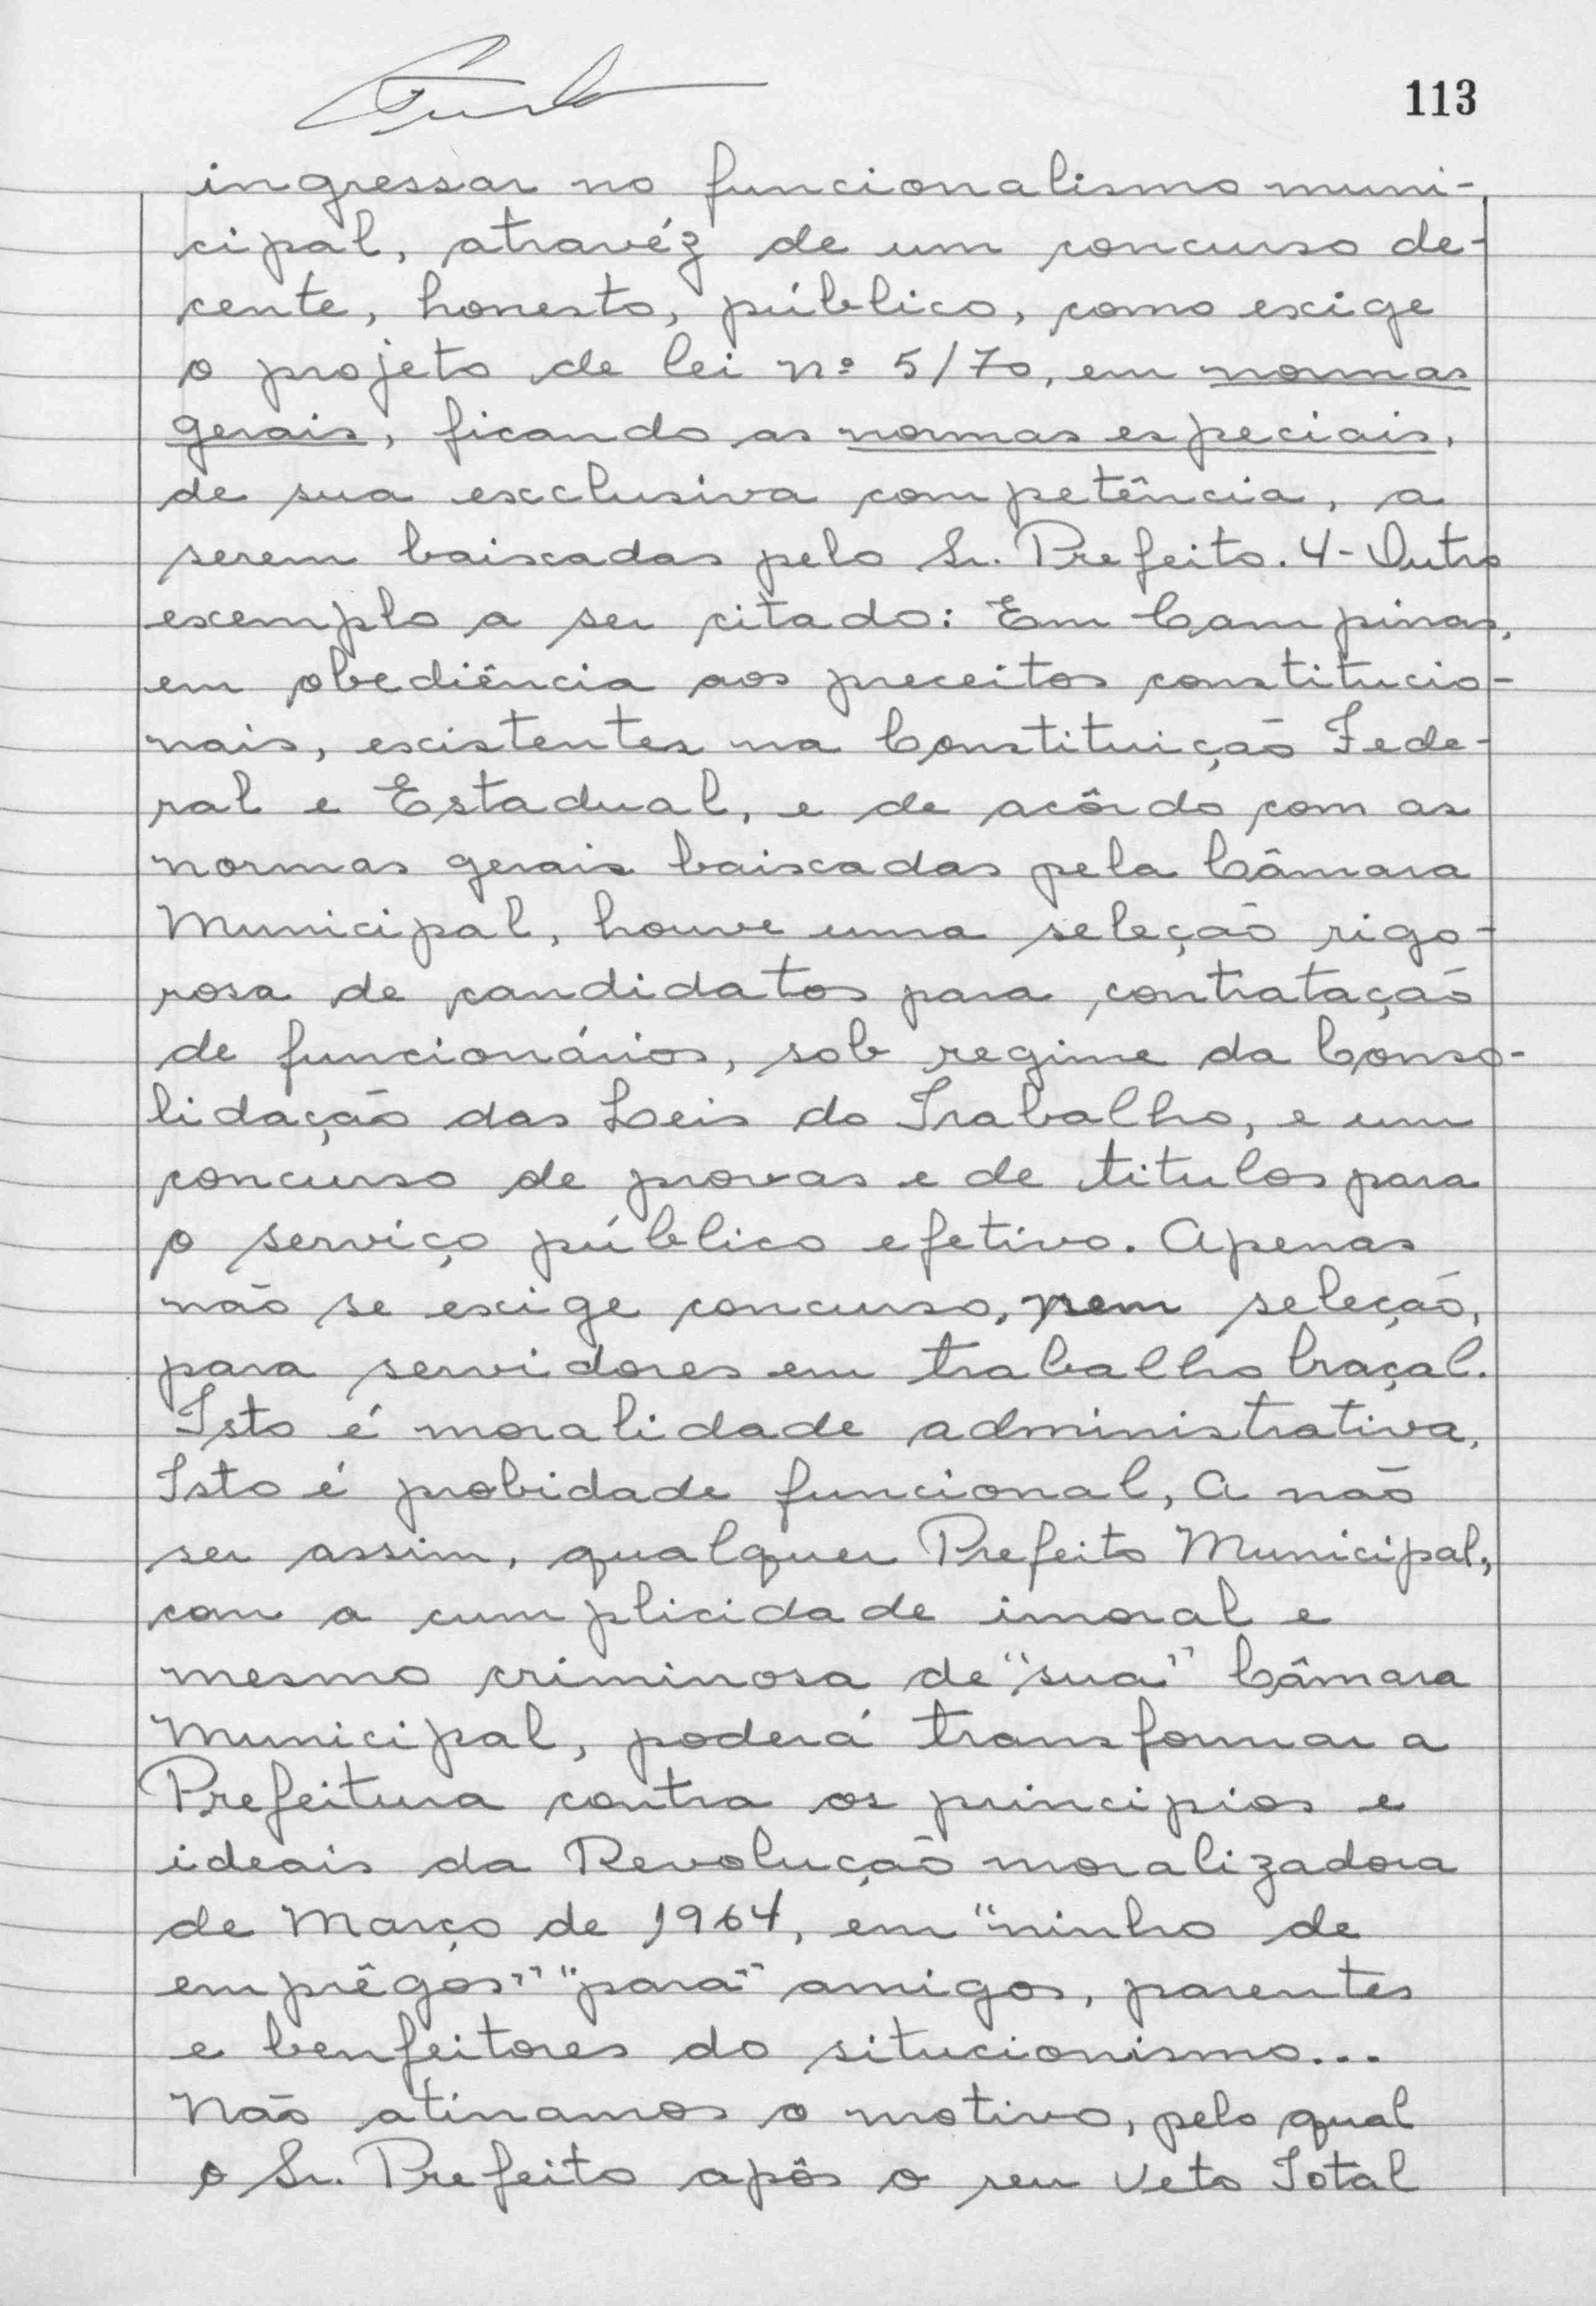 113
ingressar no funcionalismo muni-
cipal, atravéz de um concurso de-
cente, honesto, público, como exige
o projeto de lei nº 5/70, em normas
gerais, ficando as normas especiais,
de sua exclusiva competência, a
serem baixadas pelo Sr. Prefeito. 4- Outro
exemplo a ser citado: Em Campinas,
em obediência aos preceitos constitucio-
nais, existentes na Constituição Fede-
ral e Estadual, e de acôrdo com as
normas gerais baixadas pela Câmara
Municipal, houve uma seleção rigo-
rosa de candidatos para contratação
de funcionários, sob regime da Conso-
lidação das Leis do Trabalho, e um
concurso de provas e de titulos para
o serviço público efetivo. Apenas
não se exige concurso, nem seleção,
para servidores em trabalho braçal.
Isto é moralidade administrativa.
Isto é probidade funcional, A não
ser assim, qualquer Prefeito Municipal,
com a cumplicidade imoral e
mesmo criminosa de "sua" Câmara
Municipal, poderá transformar a
Prefeitura contra os principios e
ideais da Revolução moralizadora
de Março de 1964, em "ninho de
emprêgos" "para" amigos, parentes
e benfeitores do situcionismo...
Não atinamos o motivo, pelo qual
o Sr. Prefeito apôs o seu Veto Total